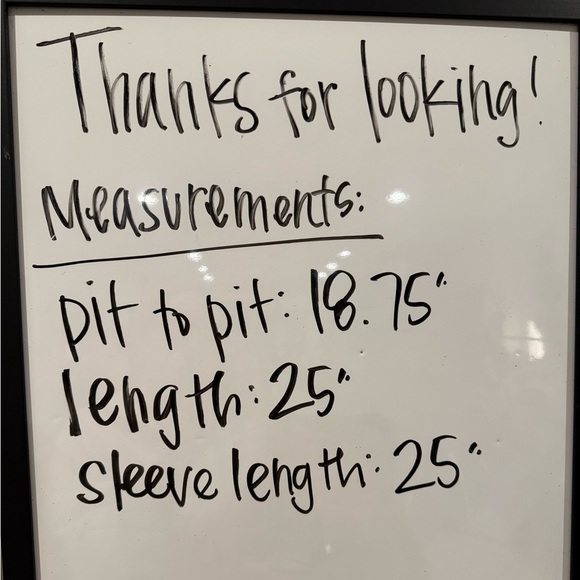 Thanks for looking!
Measurements:
pit to pit: 18.75"
length: 25"
sleeve length: 25"